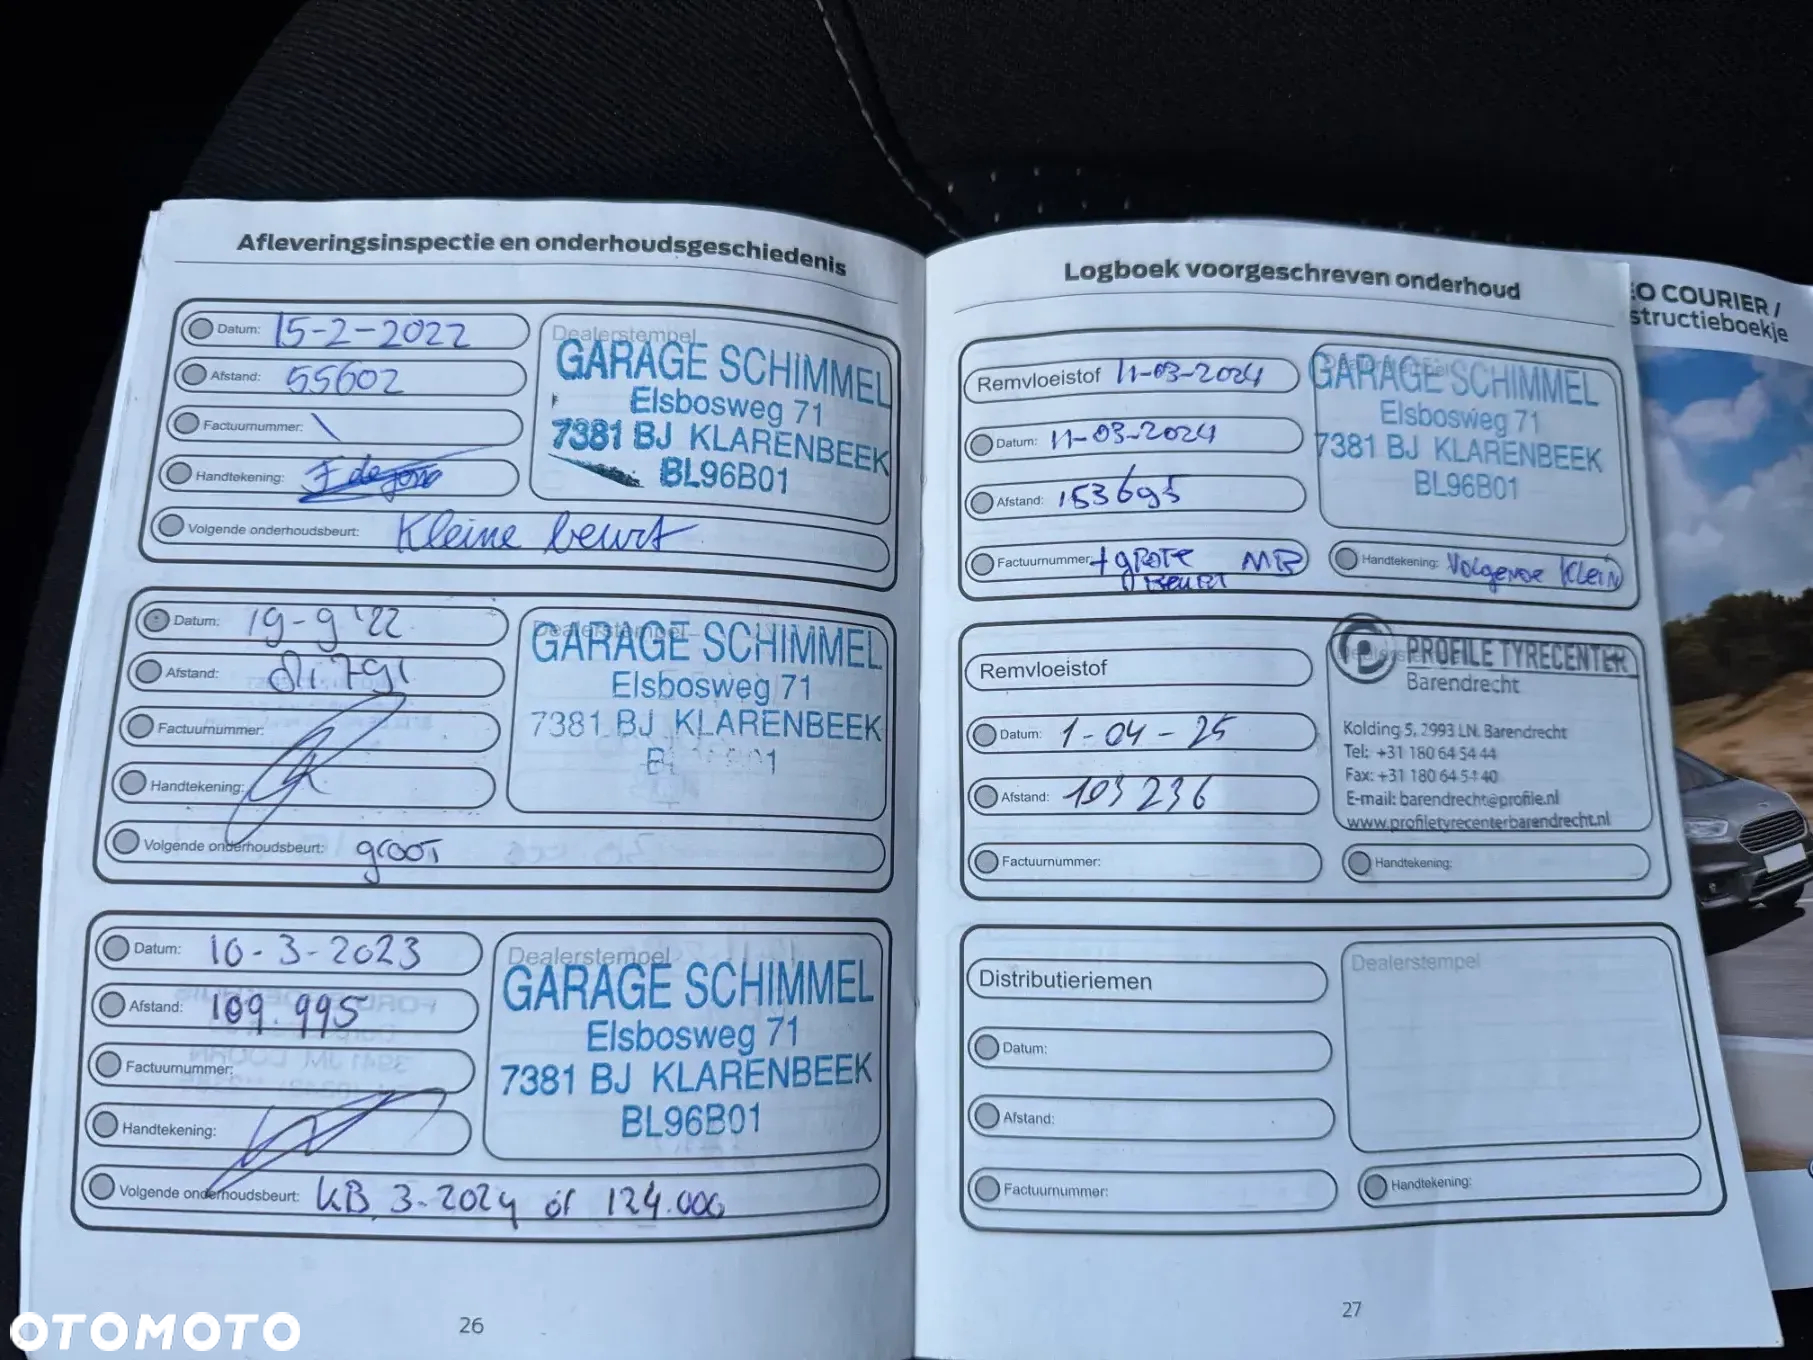 Afleveringsinspectie en onderhoudsgeschiedenis
Datum: 15-2-2022
Afstand: 55602
Factuurnummer: \
Handtekening:
Volgende onderhoudsbeurt: Kleine beurt
Dealerstempel
GARAGE SCHIMMEL
Elsbosweg 71
7381 BJ KLARENBEEK
BL96B01
Datum: 19-9 '22
Afstand:
Factuurnummer:
Handtekening:
Volgende onderhoudsbeurt: groot
Dealerstempel
GARAGE SCHIMMEL
Elsbosweg 71
7381 BJ KLARENBEEK
Datum: 10-3-2023
Afstand: 109.995
Factuurnummer:
Handtekening:
Volgende onderhoudsbeurt: KB 3-2024 of 124.000
Dealerstempel
GARAGE SCHIMMEL
Elsbosweg 71
7381 BJ KLARENBEEK
BL96B01
26
Logboek voorgeschreven onderhoud
Remvloeistof 11-03-2024
Datum: 11-03-2024
Afstand: 153695
Factuurnummer: + grote MB
Beurt
Handtekening: Volgende Klein
GARAGE SCHIMMEL
Elsbosweg 71
7381 BJ KLARENBEEK
BL96B01
Remvloeistof
Datum: 1-04-25
Afstand: 193236
Factuurnummer:
PROFILE TYRECENTER
Barendrecht
Kolding 5, 2993 LN Barendrecht
Tel: +31 180 64 54 44
Fax: +31 180 64 54 40
E-mail: barendrecht@profile.nl
www.profiletyrecenterbarendrecht.nl
Handtekening:
Distributieriemen
Datum:
Afstand:
Factuurnummer:
Dealerstempel
Handtekening:
27
EO COURIER /
structieboekje
OTOMOTO